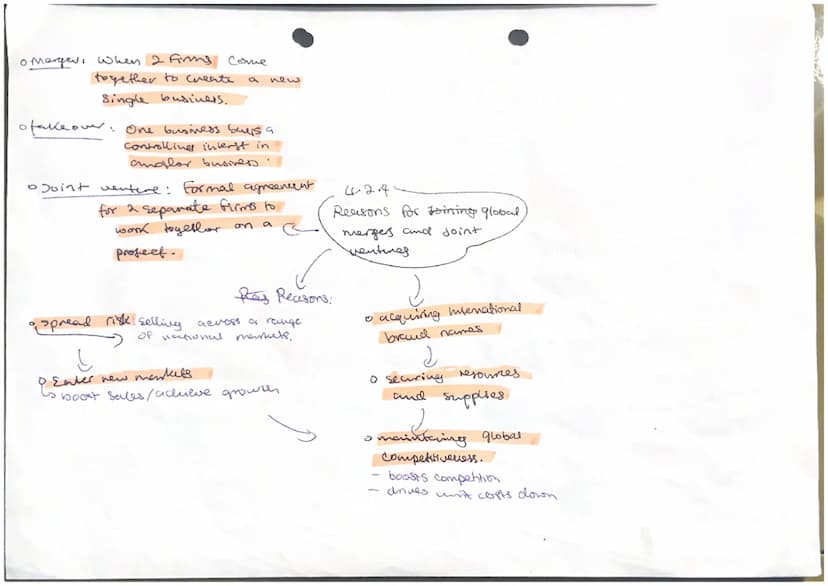 o Merger: When 2 Firms come
together to create a new
single business.
o takeover: One business buys a
controlling interst in
another business.
o Joint venture: Formal agreement
for 2 separate firms to
work together on a
project.
4.2.4
Reasons for joining global
mergers and joint
ventures
Key Reasons:
o Spread risk: selling across a range
of national markets.
o Enter new markets
boost sales/achieve growth
o acquiring international
brand names
o securing resources
and supplies
o maintaining global
competitiveness.
- boosts competition
- drives unit costs down